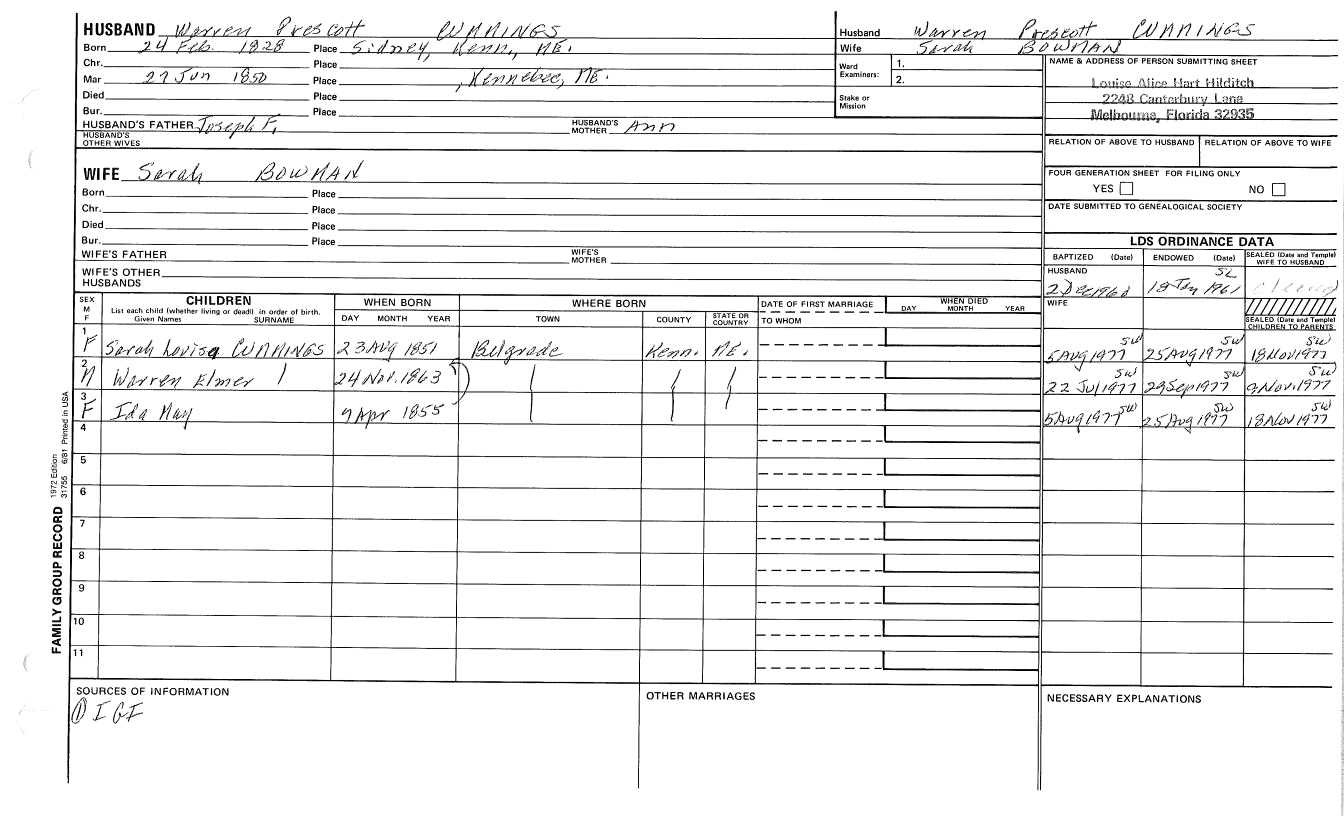 HUSBAND Warren Prescott CUMMINGS
Born 24 Feb. 1828 Place Sidney, Kenn., ME.
Chr. Place
Mar 27 Jun 1850 Place , Kennebec, ME.
Died Place
Bur. Place
HUSBAND'S FATHER Joseph F. HUSBAND'S MOTHER Ann
HUSBAND'S OTHER WIVES
Husband Warren Prescott CUMMINGS
Wife Sarah BOWMAN
Ward Examiners: 1.
2.
Stake or Mission
NAME & ADDRESS OF PERSON SUBMITTING SHEET
Louise Alice Hart Hilditch
2248 Canterbury Lane
Melbourne, Florida 32935
RELATION OF ABOVE TO HUSBAND RELATION OF ABOVE TO WIFE
FOUR GENERATION SHEET FOR FILING ONLY
YES NO
DATE SUBMITTED TO GENEALOGICAL SOCIETY
WIFE Sarah BOWMAN
Born Place
Chr. Place
Died Place
Bur. Place
WIFE'S FATHER WIFE'S MOTHER
WIFE'S OTHER HUSBANDS
LDS ORDINANCE DATA
BAPTIZED (Date) ENDOWED (Date) SEALED (Date and Temple) WIFE TO HUSBAND
HUSBAND SL
2 Dec 1960 18 Jan 1961 cleared
WIFE
SEALED (Date and Temple) CHILDREN TO PARENTS
SEX M F CHILDREN WHEN BORN WHERE BORN DATE OF FIRST MARRIAGE WHEN DIED
List each child (whether living or dead) in order of birth. Given Names SURNAME DAY MONTH YEAR TOWN COUNTY STATE OR COUNTRY TO WHOM DAY MONTH YEAR
1 F Sarah Lovisa CUMMINGS 23 Aug 1851 Belgrade Kenn. ME. 5 Aug 1977 SW 25 Aug 1977 SW 18 Nov 1977 SW
2 M Warren Elmer 24 Nov. 1863 22 Jul 1977 SW 29 Sep 1977 SW 9 Nov. 1977 SW
3 F Ida May 9 Apr 1855 5 Aug 1977 SW 25 Aug 1977 SW 18 Nov 1977 SW
4
5
6
7
8
9
10
11
SOURCES OF INFORMATION OTHER MARRIAGES NECESSARY EXPLANATIONS
① IGI
FAMILY GROUP RECORD 1972 Edition 31755 6/81 Printed in USA